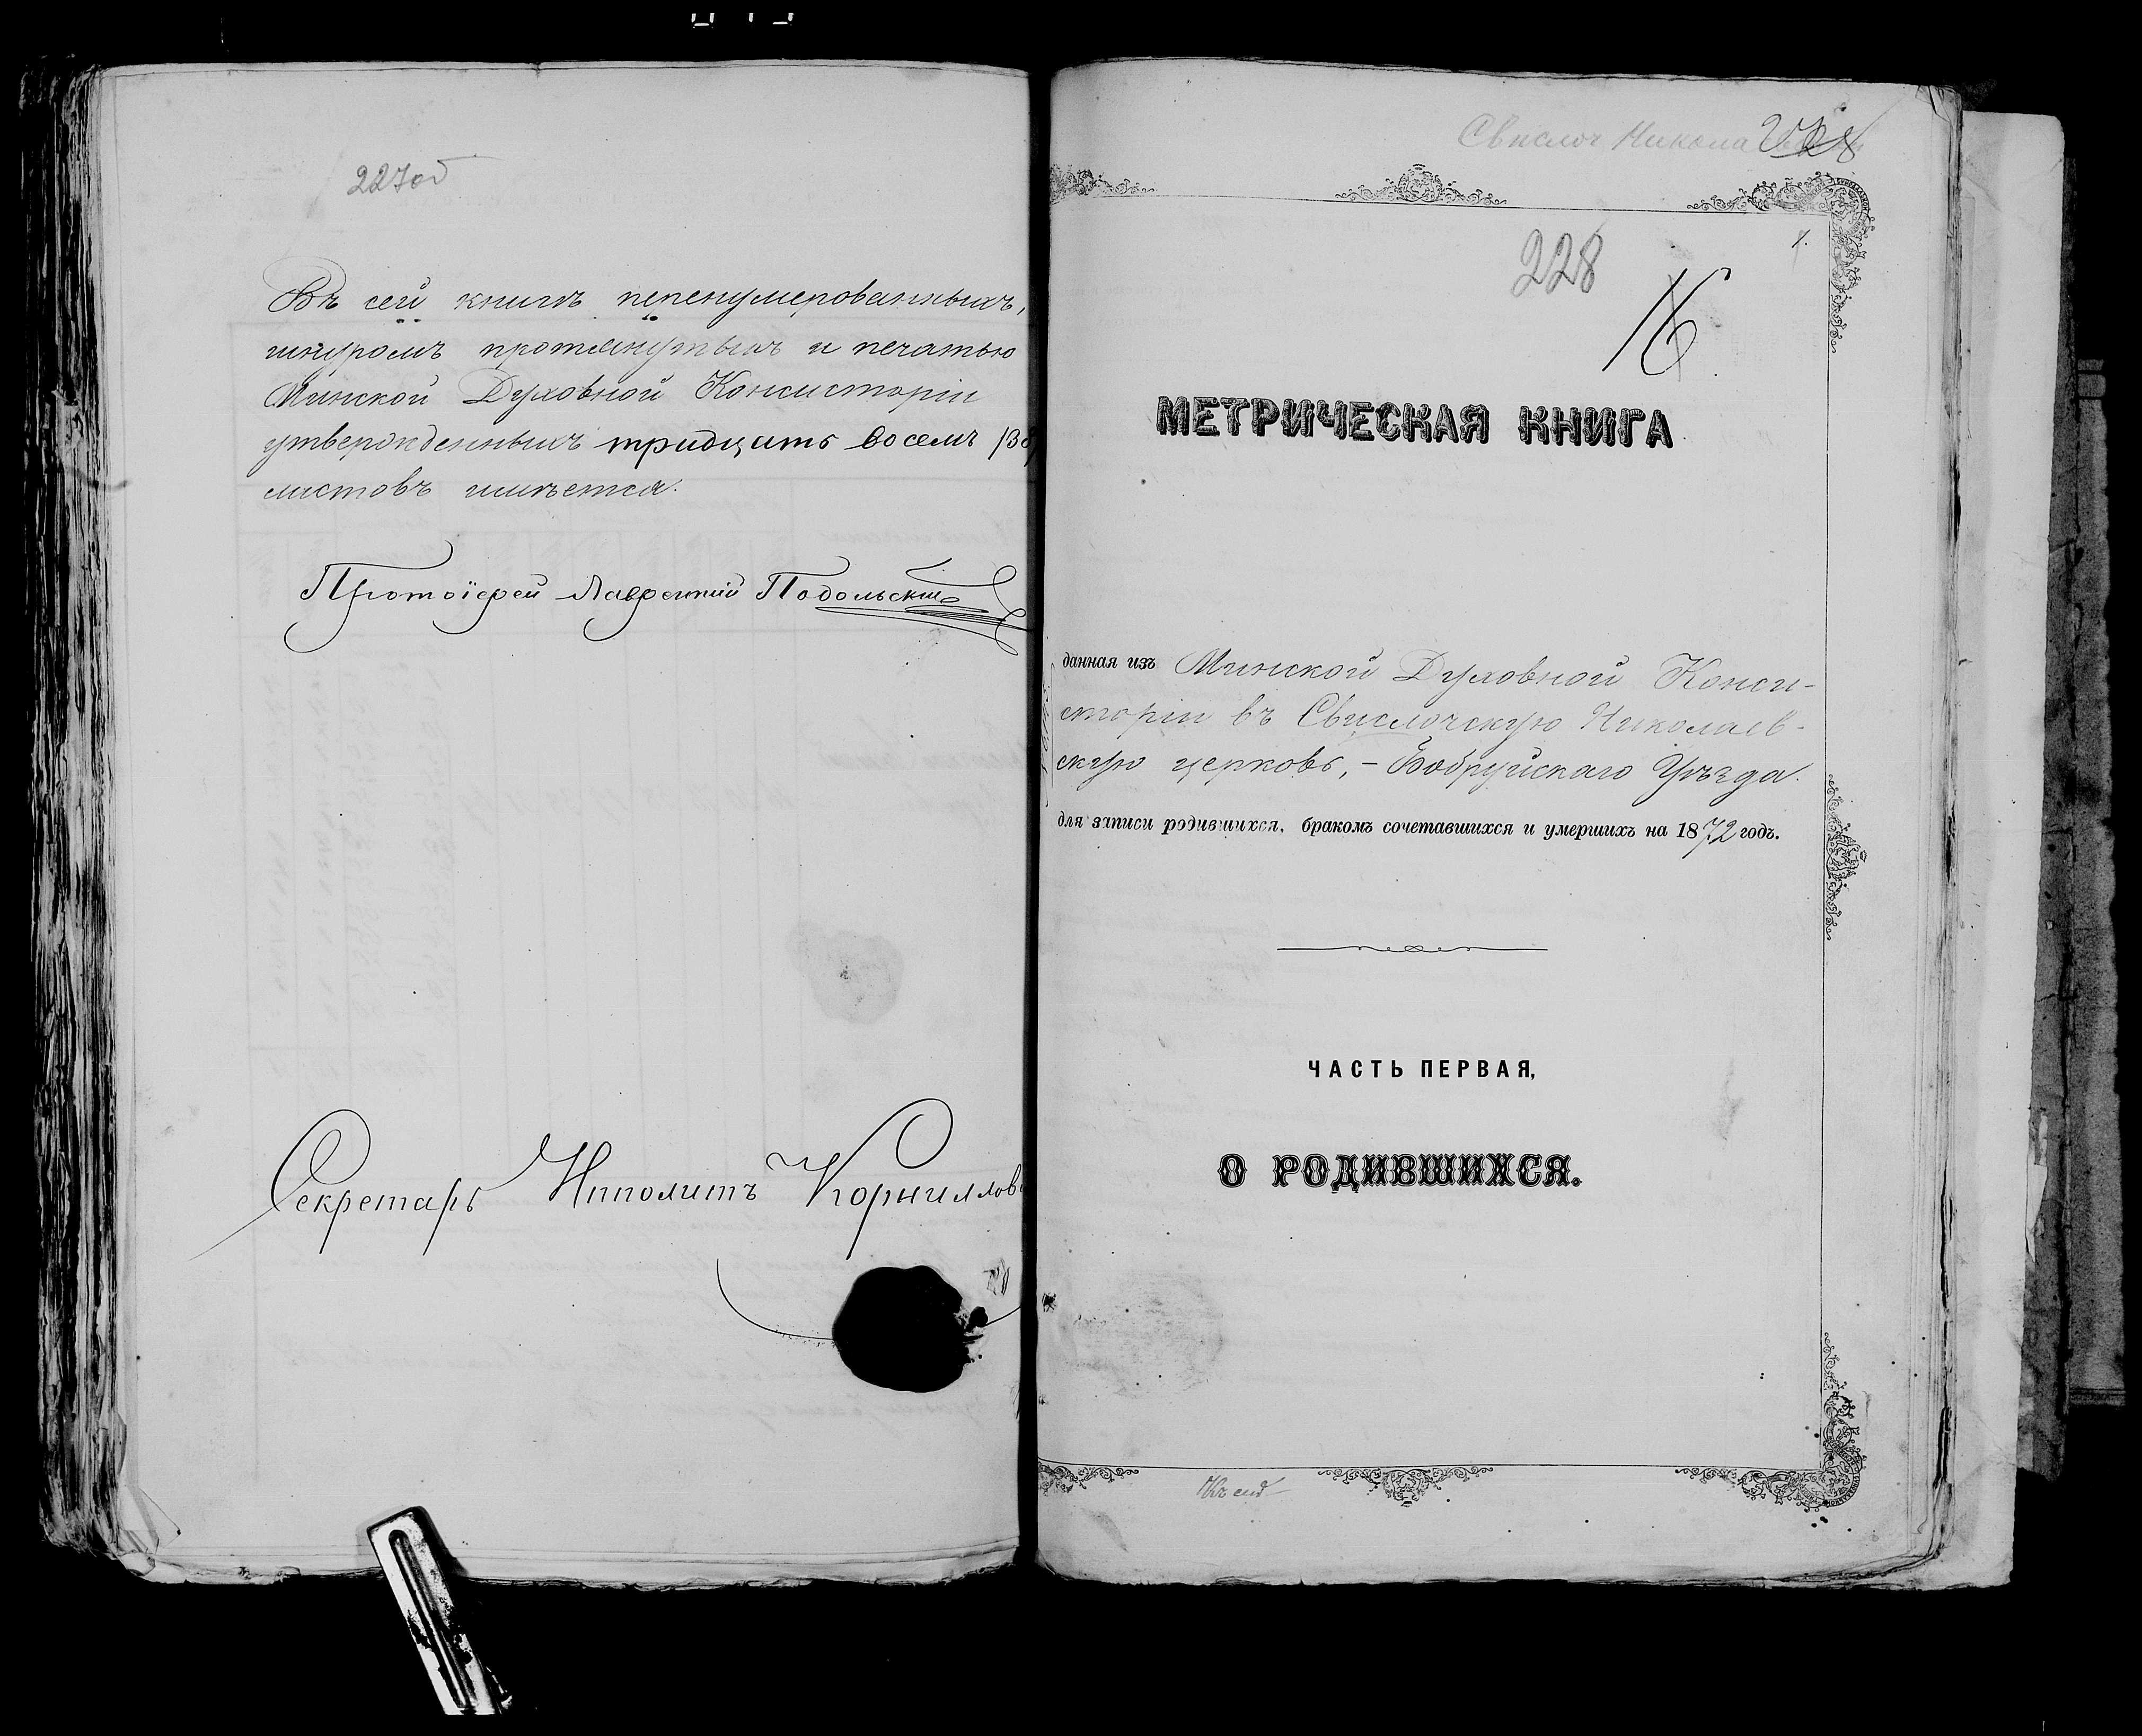 227об
Въ сей книгѣ перенумерованныхъ,
шнуромъ протянутыхъ и печатью
Минской Духовной Консисторіи
утвержденныхъ тридцать восемь /38/
листовъ имѣется.
Протоіерей Лаврентій Подольскій
Секретарь Ипполитъ Корниллов
Свислоч Никола
228
1.
16
МЕТРИЧЕСКАЯ КНИГА
данная изъ Минской Духовной Конси-
сторіи въ Свислочскую Николаев-
скую церковь, - Бобруйскаго Уѣзда.
для записи родившихся, бракомъ сочетавшихся и умершихъ на 1872 годъ.
ЧАСТЬ ПЕРВАЯ,
О РОДИВШИХСЯ.